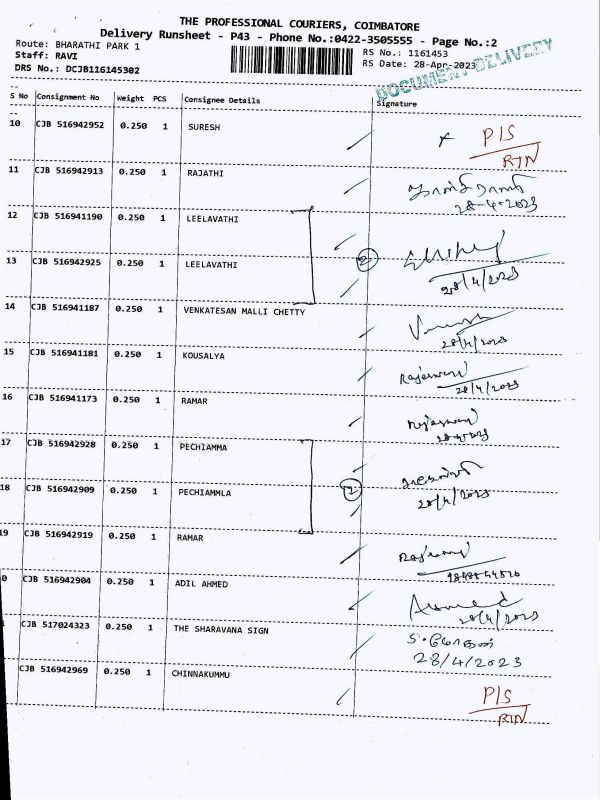 THE PROFESSIONAL COURIERS, COIMBATORE
Delivery Runsheet - P43 - Phone No.:0422-3505555 - Page No.:2
Route: BHARATHI PARK 1
RS No.: 1161453
Staff: RAVI
RS Date: 28-Apr-2023
DRS No.: DCJB116145302
DOCUMENT DELIVERY
S No Consignment No Weight PCS Consignee Details Signature
10 CJB 516942952 0.250 1 SURESH P/S
RTN
11 CJB 516942913 0.250 1 RAJATHI
28-4-2023
12 CJB 516941190 0.250 1 LEELAVATHI
13 CJB 516942925 0.250 1 LEELAVATHI 2
28/4/2023
14 CJB 516941187 0.250 1 VENKATESAN MALLI CHETTY
28/4/2023
15 CJB 516941181 0.250 1 KOUSALYA Rajeswari
28/4/2023
16 CJB 516941173 0.250 1 RAMAR Rajeswari
17 CJB 516942928 0.250 1 PECHIAMMA
18 CJB 516942909 0.250 1 PECHIAMMLA 2
28/4/2023
19 CJB 516942919 0.250 1 RAMAR
0 CJB 516942904 0.250 1 ADIL AHMED Ahmed
28/4/2023
CJB 517024323 0.250 1 THE SHARAVANA SIGN
28/4/2023
CJB 516942969 0.250 1 CHINNAKUMMU P/S
RTN